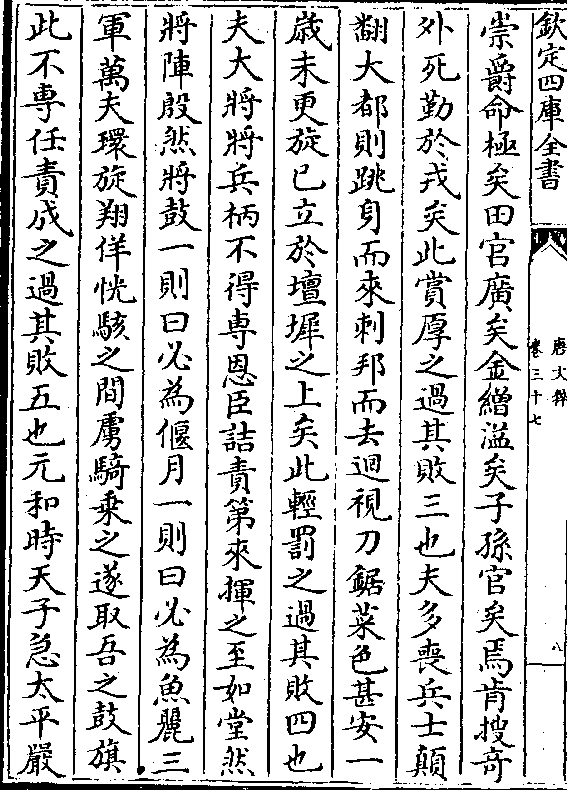 欽定四庫全書
唐文粹
卷三十七
八
崇爵命極矣田官廣矣金繒溢矣子孫官矣焉肯搜奇
外死勤於戎矣此賞厚之過其敗三也夫多喪兵士顛
翻大都則跳身而來刺邦而去迴視刀鋸菜色甚安一
歲未更旋已立於壇墀之上矣此輕罰之過其敗四也
夫大將將兵柄不得専恩臣詰責第來揮之至如堂然
將陣殷然將鼓一則曰必為偃月一則曰必為魚麗三
軍萬夫環旋翔佯恍駭之間虜騎乗之遂取吾之鼓旗
此不専任責成之過其敗五也元和時天子急太平嚴